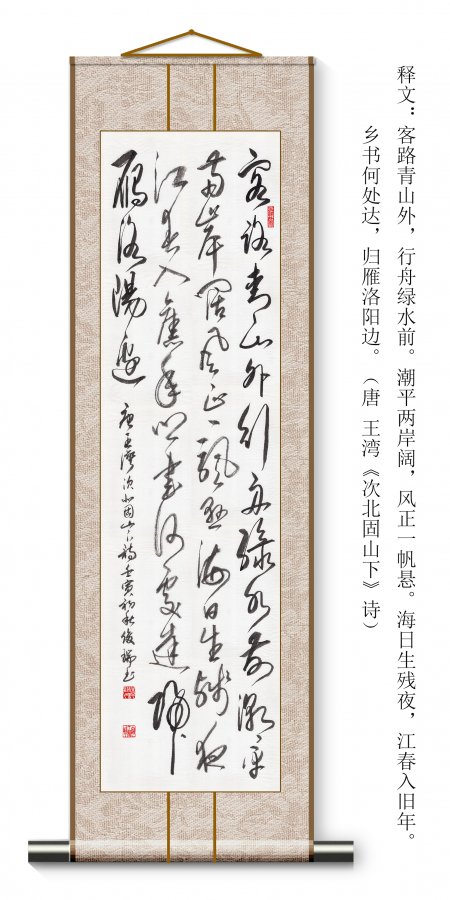 释文：客路青山外，行舟绿水前。潮平两岸阔，风正一帆悬。海日生残夜，江春入旧年。
乡书何处达，归雁洛阳边。（唐 王湾《次北固山下》诗）
客路青山外行舟绿水前潮平
两岸阔风正一帆悬海日生残夜
江春入旧年乡书何处达归
雁洛陽边
唐王湾次北固山下诗壬寅初秋